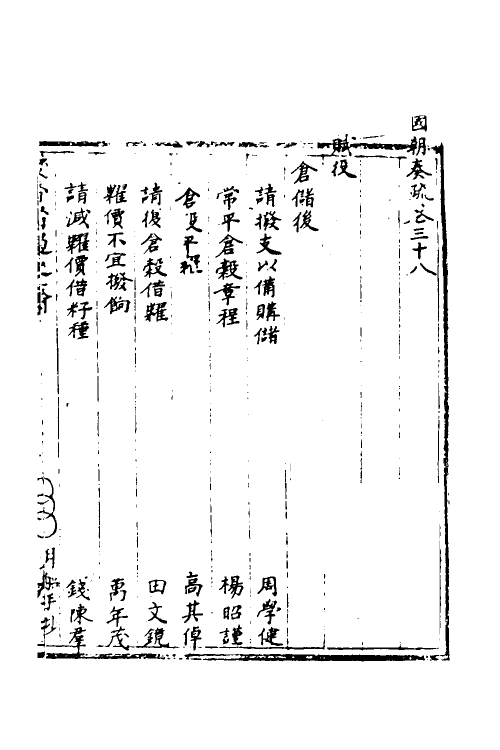 國朝奏疏卷三十八
賦役
倉儲後
請撥支以備購儲 周學健
常平倉穀章程 楊昭謹
倉更平糶 高其倬
請復倉穀借糶 田文鏡
糶價不宜撥餉 萬年茂
請減糶價借籽種 錢陳羣